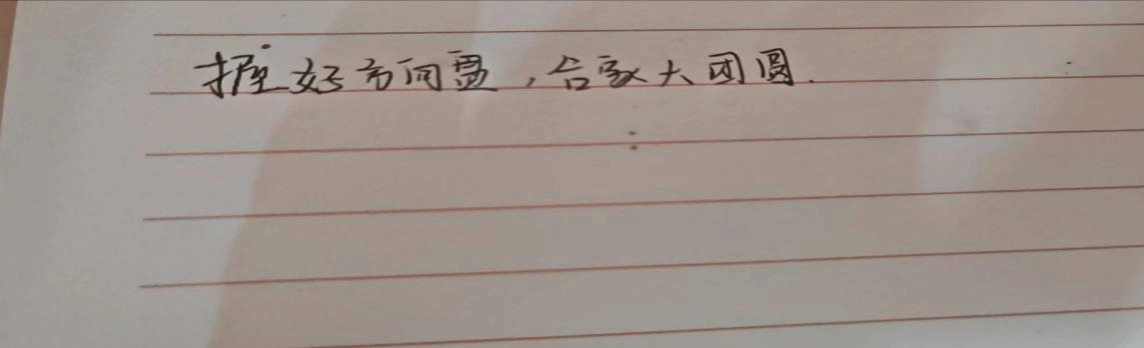 握好方向盘，合家大团圆.